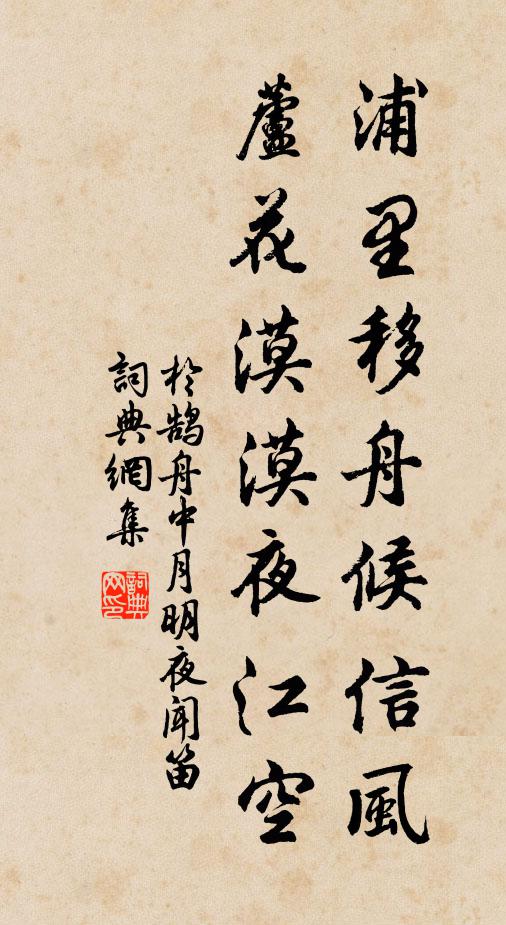 浦里移舟候信風
蘆花漠漠夜江空
於鵠舟中月明夜闻笛
詞典網集
詞典
网印